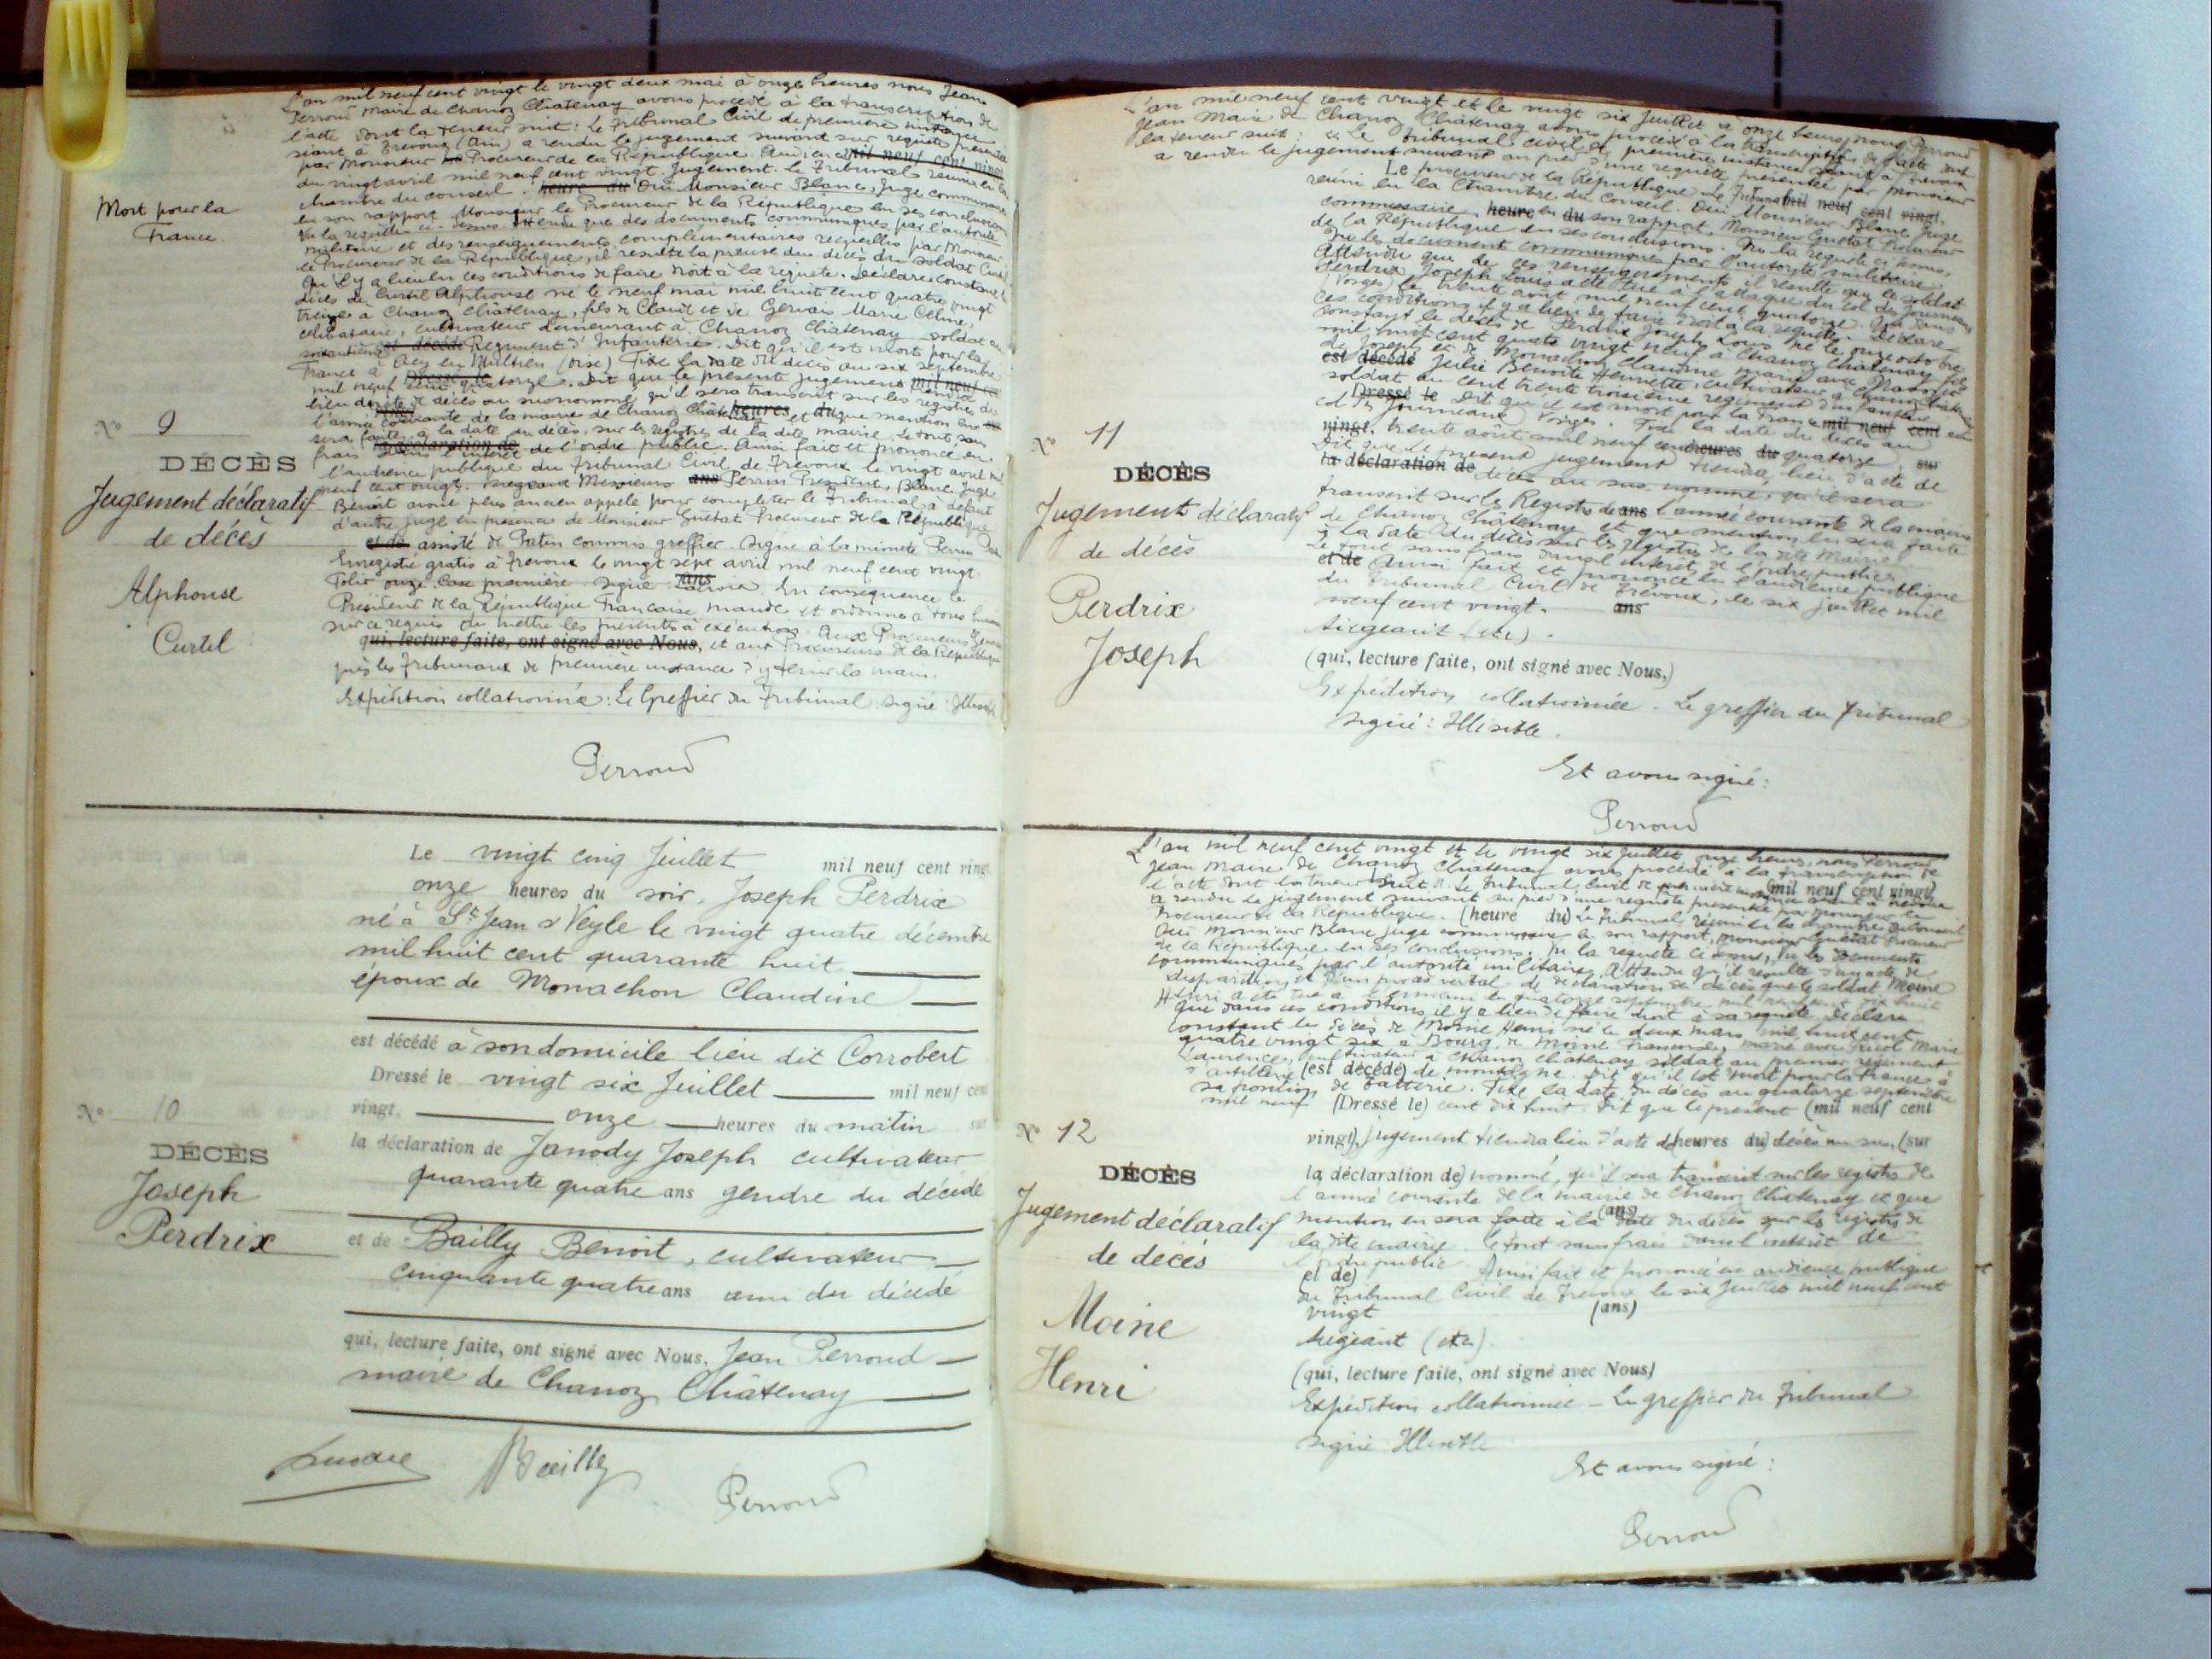 L'an mil neuf cent vingt le vingt deux mai à onze heures nous Jean
Perroud Maire de Chanoz Châtenay avons procédé à la transcription de
l'acte dont la teneur suit : Le Tribunal Civil de première instance
séant à Trévoux (Ain) a rendu le jugement suivant sur requête présentée
par Monsieur le Procureur de la République. Audience mil neuf cent vingt
du vingt avril mil neuf cent vingt. Jugement. Le Tribunal réuni en la
chambre du conseil. heure du Ouï Monsieur Blanc, Juge commissaire
en son rapport Monsieur le Procureur de la République en ses conclusions
Vu la requête ci-dessus. Attendu que des documents communiqués par l'autorité
militaire et des renseignements complémentaires recueillis par Monsieur
le Procureur de la République, il résulte la preuve du décès du soldat Curtil
Qu'il y a lieu en ces conditions de faire droit à la requête. Déclare constant le
décès de Curtil Alphonse né le neuf mai mil huit cent quatre vingt
treize à Chanoz Châtenay, fils de Claude et de Gervais Marie Céline,
célibataire, cultivateur demeurant à Chanoz Châtenay soldat au
soixantième est décédé Régiment d'Infanterie. Dit qu'il est mort pour la
France à Acy en Multien (Oise) Fixe la date du décès au six septembre
Dressé le
mil neuf cent quatorze. Dit que le présent jugement mil neuf cent tiendra
lieu d'acte de décès au susnommé qu'il sera transcrit sur les registres de
vingt
l'année courante de la mairie de Chanoz Châtenay heures et du que mention en
sera faite à la date du décès, sur les registres de la dite mairie. Le tout sans
frais la déclaration de l'intérêt de l'ordre public. Ainsi fait et prononcé en
l'audience publique du Tribunal Civil de Trévoux le vingt avril mil
neuf cent vingt. Siégeant Messieurs ans Perrin Président, Blanc Juge
Benoit avoué plus ancien appelé pour compléter le Tribunal à défaut
d'autre juge en présence de Monsieur Guétat Procureur de la République
et de assisté de Patin commis greffier. Signé à la minute Perrin
Enregistré gratis à Trévoux le vingt sept avril mil neuf cent vingt.
Folio onze Case première. Signé ans En conséquence le
Président de la République Française mande et ordonne à tous huissiers
sur ce requis de mettre les présentes à exécution. Aux Procureurs Généraux
qui, lecture faite, ont signé avec Nous, et aux Procureurs de la République
près les Tribunaux de première instance d'y tenir la main.
Expédition collationnée : Le Greffier du Tribunal signé : Illisible
Perroud
Mort pour la
France
N° 9
DÉCÈS
Jugement déclaratif
de décès
Alphonse
Curtil
Le vingt cinq Juillet mil neuf cent vingt
onze heures du soir, Joseph Perdrix
né à St Jean s/ Veyle le vingt quatre décembre
mil huit cent quarante huit
époux de Monachon Claudine
est décédé à son domicile lieu dit Corrobert
Dressé le vingt six Juillet mil neuf cent
vingt, onze heures du matin sur
la déclaration de Janody Joseph cultivateur
quarante quatre ans gendre du décédé
et de Bailly Benoit, cultivateur
cinquante quatre ans ami du décédé
qui, lecture faite, ont signé avec Nous, Jean Perroud
maire de Chanoz Châtenay
Bailly
Perroud
N° 10
DÉCÈS
Joseph
Perdrix
L'an mil neuf cent vingt et le vingt six Juillet à onze heures, nous Perroud
Jean Maire de Chanoz Châtenay avons procédé à la transcription de l'acte dont
la teneur suit : "Le Tribunal civil de première instance séant à Trévoux
a rendu le jugement suivant au pied d'une requête présentée par Monsieur
Le procureur de la République Le Tribunal mil neuf cent vingt.
réuni en la Chambre du Conseil. Ouï Monsieur Blanc Juge
commissaire heure en du son rapport, Monsieur Guétat Procureur
de la République en ses conclusions. Vu la requête ci-dessus,
Vu les documents communiqués par l'autorité militaire
Attendu que de ces renseignements il résulte que le soldat
Perdrix Joseph Louis a été tué à l'attaque du col des Journeaux
(Vosges) le trente août mil neuf cent quatorze. Que dans
ces conditions il y a lieu de faire droit à la requête. Déclare
constant le décès de Perdrix Joseph Louis né le onze octobre
mil huit cent quatre vingt neuf à Chanoz Châtenay fils
de Joseph et de Monachon Claudine marié avec
est décédé Julie Benoite Henriette, cultivateur à Chanoz Châtenay
soldat au cent trente troisième régiment d'infanterie
Dressé le Dit qu'il est mort pour la France mil neuf cent au
col des Journeaux Vosges. Fixe la date du décès au
vingt, trente août mil neuf cent heures du quatorze. sur
Dit que le présent jugement tiendra lieu d'acte de
la déclaration de décès au sus-nommé, qu'il sera
transcrit sur les Registres de ans l'année courante de la mairie
de Chanoz Châtenay et que mention en sera faite
à la date du décès sur les registres de la dite Mairie
Le tout sans frais dans l'intérêt de l'ordre public.
et de Ainsi fait et prononcé en l'audience publique
du Tribunal Civil de Trévoux, le six Juillet mil
neuf cent vingt. ans
Siégeant (etc).
(qui, lecture faite, ont signé avec Nous,)
Expédition collationnée. Le greffier du Tribunal
signé : Illisible.
Et avons signé :
Perroud
N° 11
DÉCÈS
Jugement déclaratif
de décès
Perdrix
Joseph
L'an mil neuf cent vingt et le vingt six Juillet, onze heures, nous Perroud
Jean Maire de Chanoz Châtenay avons procédé à la transcription de
l'acte dont la teneur suit : Le Tribunal Civil de première instance (mil neuf cent vingt) séant à Trévoux
a rendu le jugement suivant au pied d'une requête présentée par Monsieur le
Procureur de la République. (heure du) Le Tribunal réuni en la chambre du conseil
Ouï Monsieur Blanc Juge commissaire en son rapport, Monsieur Guétat Procureur
de la République en ses conclusions. Vu la requête ci-dessus, Vu les documents
communiqués par l'autorité militaire, Attendu qu'il résulte d'un acte de
disparition et d'un procès verbal de déclaration de décès que le soldat Moine
Henri a été tué à le quatorze septembre mil neuf cent dix huit
Que dans ces conditions il y a lieu de faire droit à sa requête Déclare
constant le décès de Moine Henri né le deux mars mil huit cent
quatre vingt six à Bourg, de Moine Françoise, marié avec Marie
Laurence, cultivateur à Chanoz Châtenay soldat au premier régiment
d'artillerie (est décédé) de montagne. Dit qu'il est mort pour la France à
sa position de batterie. Fixe la date du décès au quatorze septembre
mil neuf (Dressé le) cent dix huit. Dit que le présent (mil neuf cent
vingt), jugement tiendra lieu d'acte de (heures du) décès au sus, (sur
la déclaration de) nommé, qu'il sera transcrit sur les registres de
l'année courante de la mairie de Chanoz Châtenay et que
mention en sera faite à la (ans) date du décès sur les registres de
la dite mairie. Le tout sans frais dans l'intérêt de
l'ordre public. Ainsi fait et prononcé en audience publique
et de)
du Tribunal Civil de Trévoux le six Juillet mil neuf cent
vingt (ans)
Siégeant (etc)
(qui, lecture faite, ont signé avec Nous)
Expédition collationnée – Le greffier du Tribunal
signé Illisible
Et avons signé :
Perroud
N° 12
DÉCÈS
Jugement déclaratif
de décès
Moine
Henri